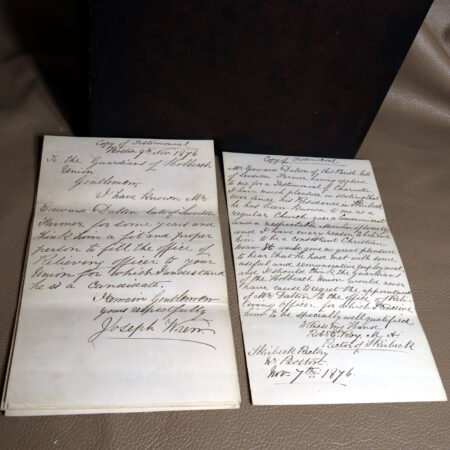 Copy of Testimonial
Boston 9th Nov 1876
To the Guardians of Holbeach
Union
Gentlemen
I have known Mr
Edward Dalton late of
Farmer for some years and
think him a fit and proper
person to fill the office of
Relieving officer to your
Union for which I understand
he is a Candidate.
I remain Gentlemen
yours respectfully
Joseph Wren
Copy of Testimonial
Mr Edward Dalton of this Parish late
of Farmer having applied
to me for a Testimonial of Character
I have much pleasure in stating that
ever since his Residence in Skirbeck
he has been known to me as a
regular Church goer, a Communicant
and a respectable Member of Society
and I have every reason to believe
him to be a consistent Christian
man. It would give me great pleasure
to hear that he had met with some
useful and remunerative employment
and I should think the Guardians
of the Holbeach Union would never
have cause to regret the appointment
of Mr Dalton to the office of Relieving
officer, for which I conceive
him to be specially well qualified
Witness my Hand
Roy M.A
Rector of Skirbeck
Skirbeck Rectory
Nr Boston
Nov 7th 1876